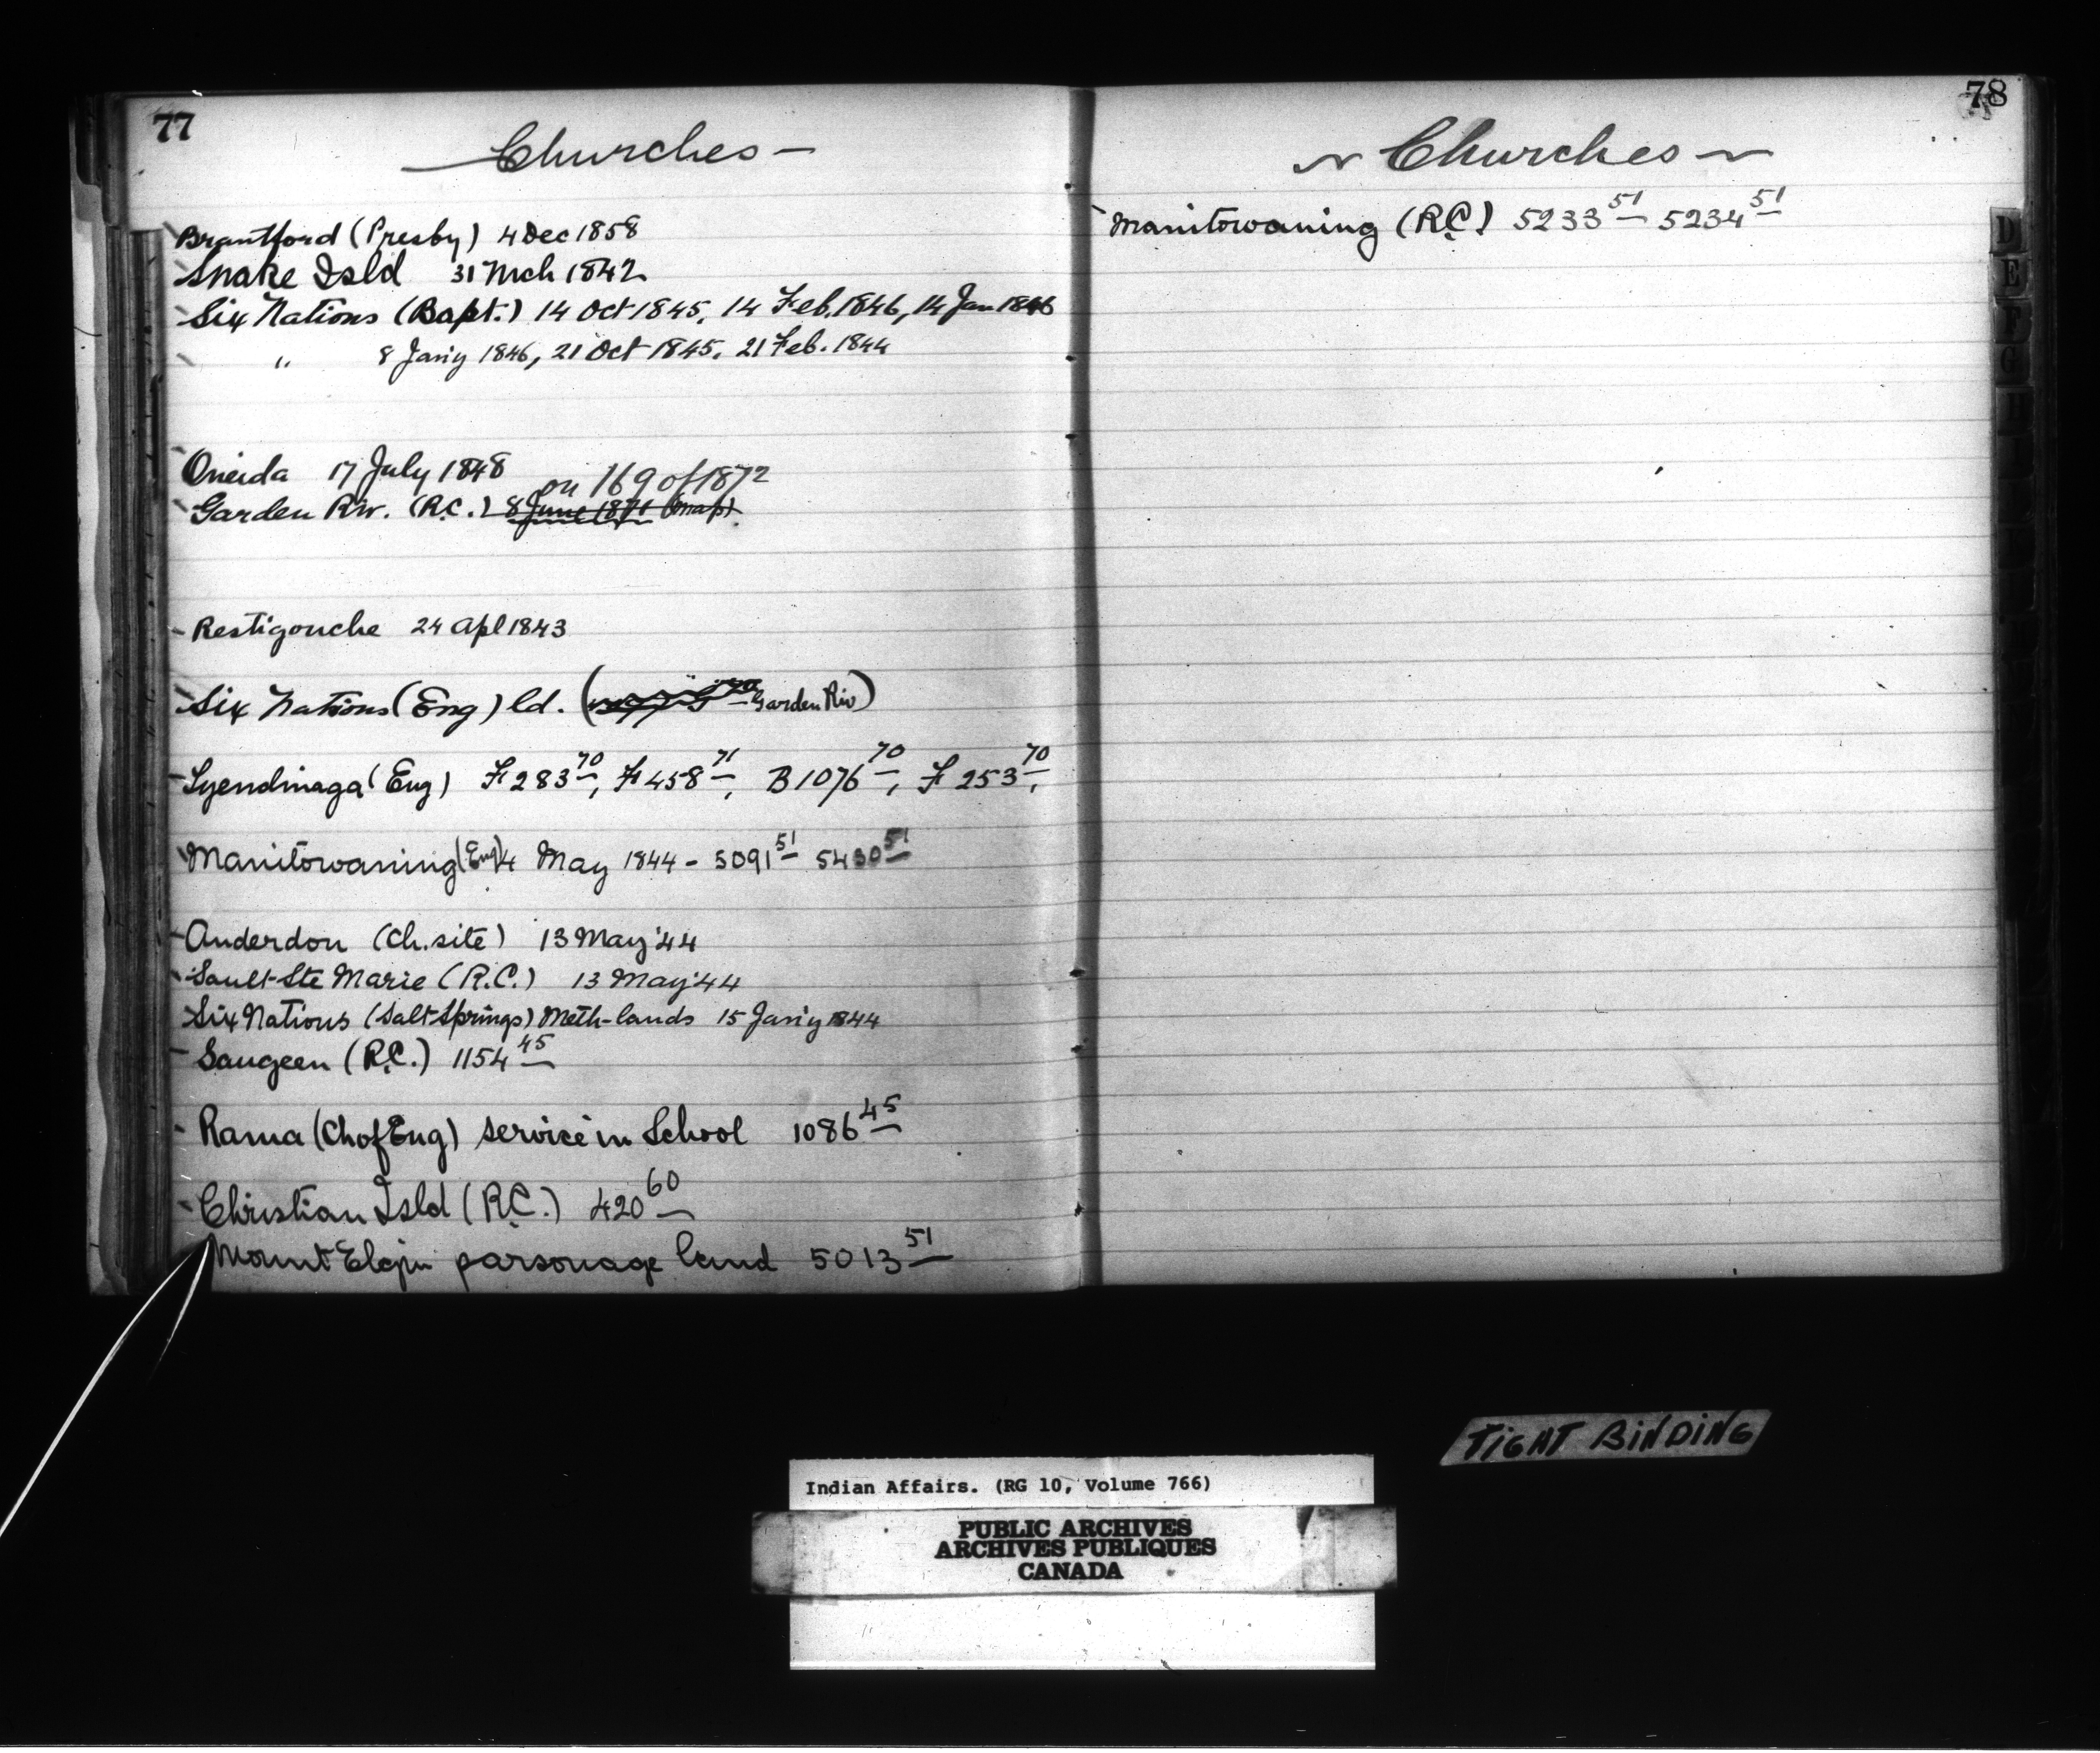 77
Churches
Brantford (Presby) 4 Dec 1858
Snake Isld 31 Mch 1842
Six Nations (Bapt.) 14 Oct 1845, 14 Feb. 1846, 14 Jan 1846
" 8 Jan'y 1846, 21 Oct 1845, 21 Feb. 1844
Oneida 17 July 1848
on 169 of 1872
Garden Riv. (R.C.) 8 June 1871 (map)
Restigouche 24 Apl 1843
Six Nations (Eng) ld. (Garden Riv)
Tyendinaga (Eng) F 283 70, F 458 71, B 1076 70, F 253 70,
Manitowaning (Eng) 4 May 1844 - 5091 51 5430 51
Anderdon (Ch. site) 13 May '44
Sault-Ste Marie (R.C.) 13 May '44
Six Nations (Salt Springs) Meth-lands 15 Jan'y 1844
Saugeen (R.C.) 1154 45
Rama (Ch of Eng) service in School 1086 45
Christian Isld (R.C.) 420 60
Mount Elgin parsonage land 5013 51
78
Churches
Manitowaning (R.C.) 5233 51 5234 51
D
E
F
G
H
TIGHT BINDING
Indian Affairs. (RG 10, Volume 766)
PUBLIC ARCHIVES
ARCHIVES PUBLIQUES
CANADA